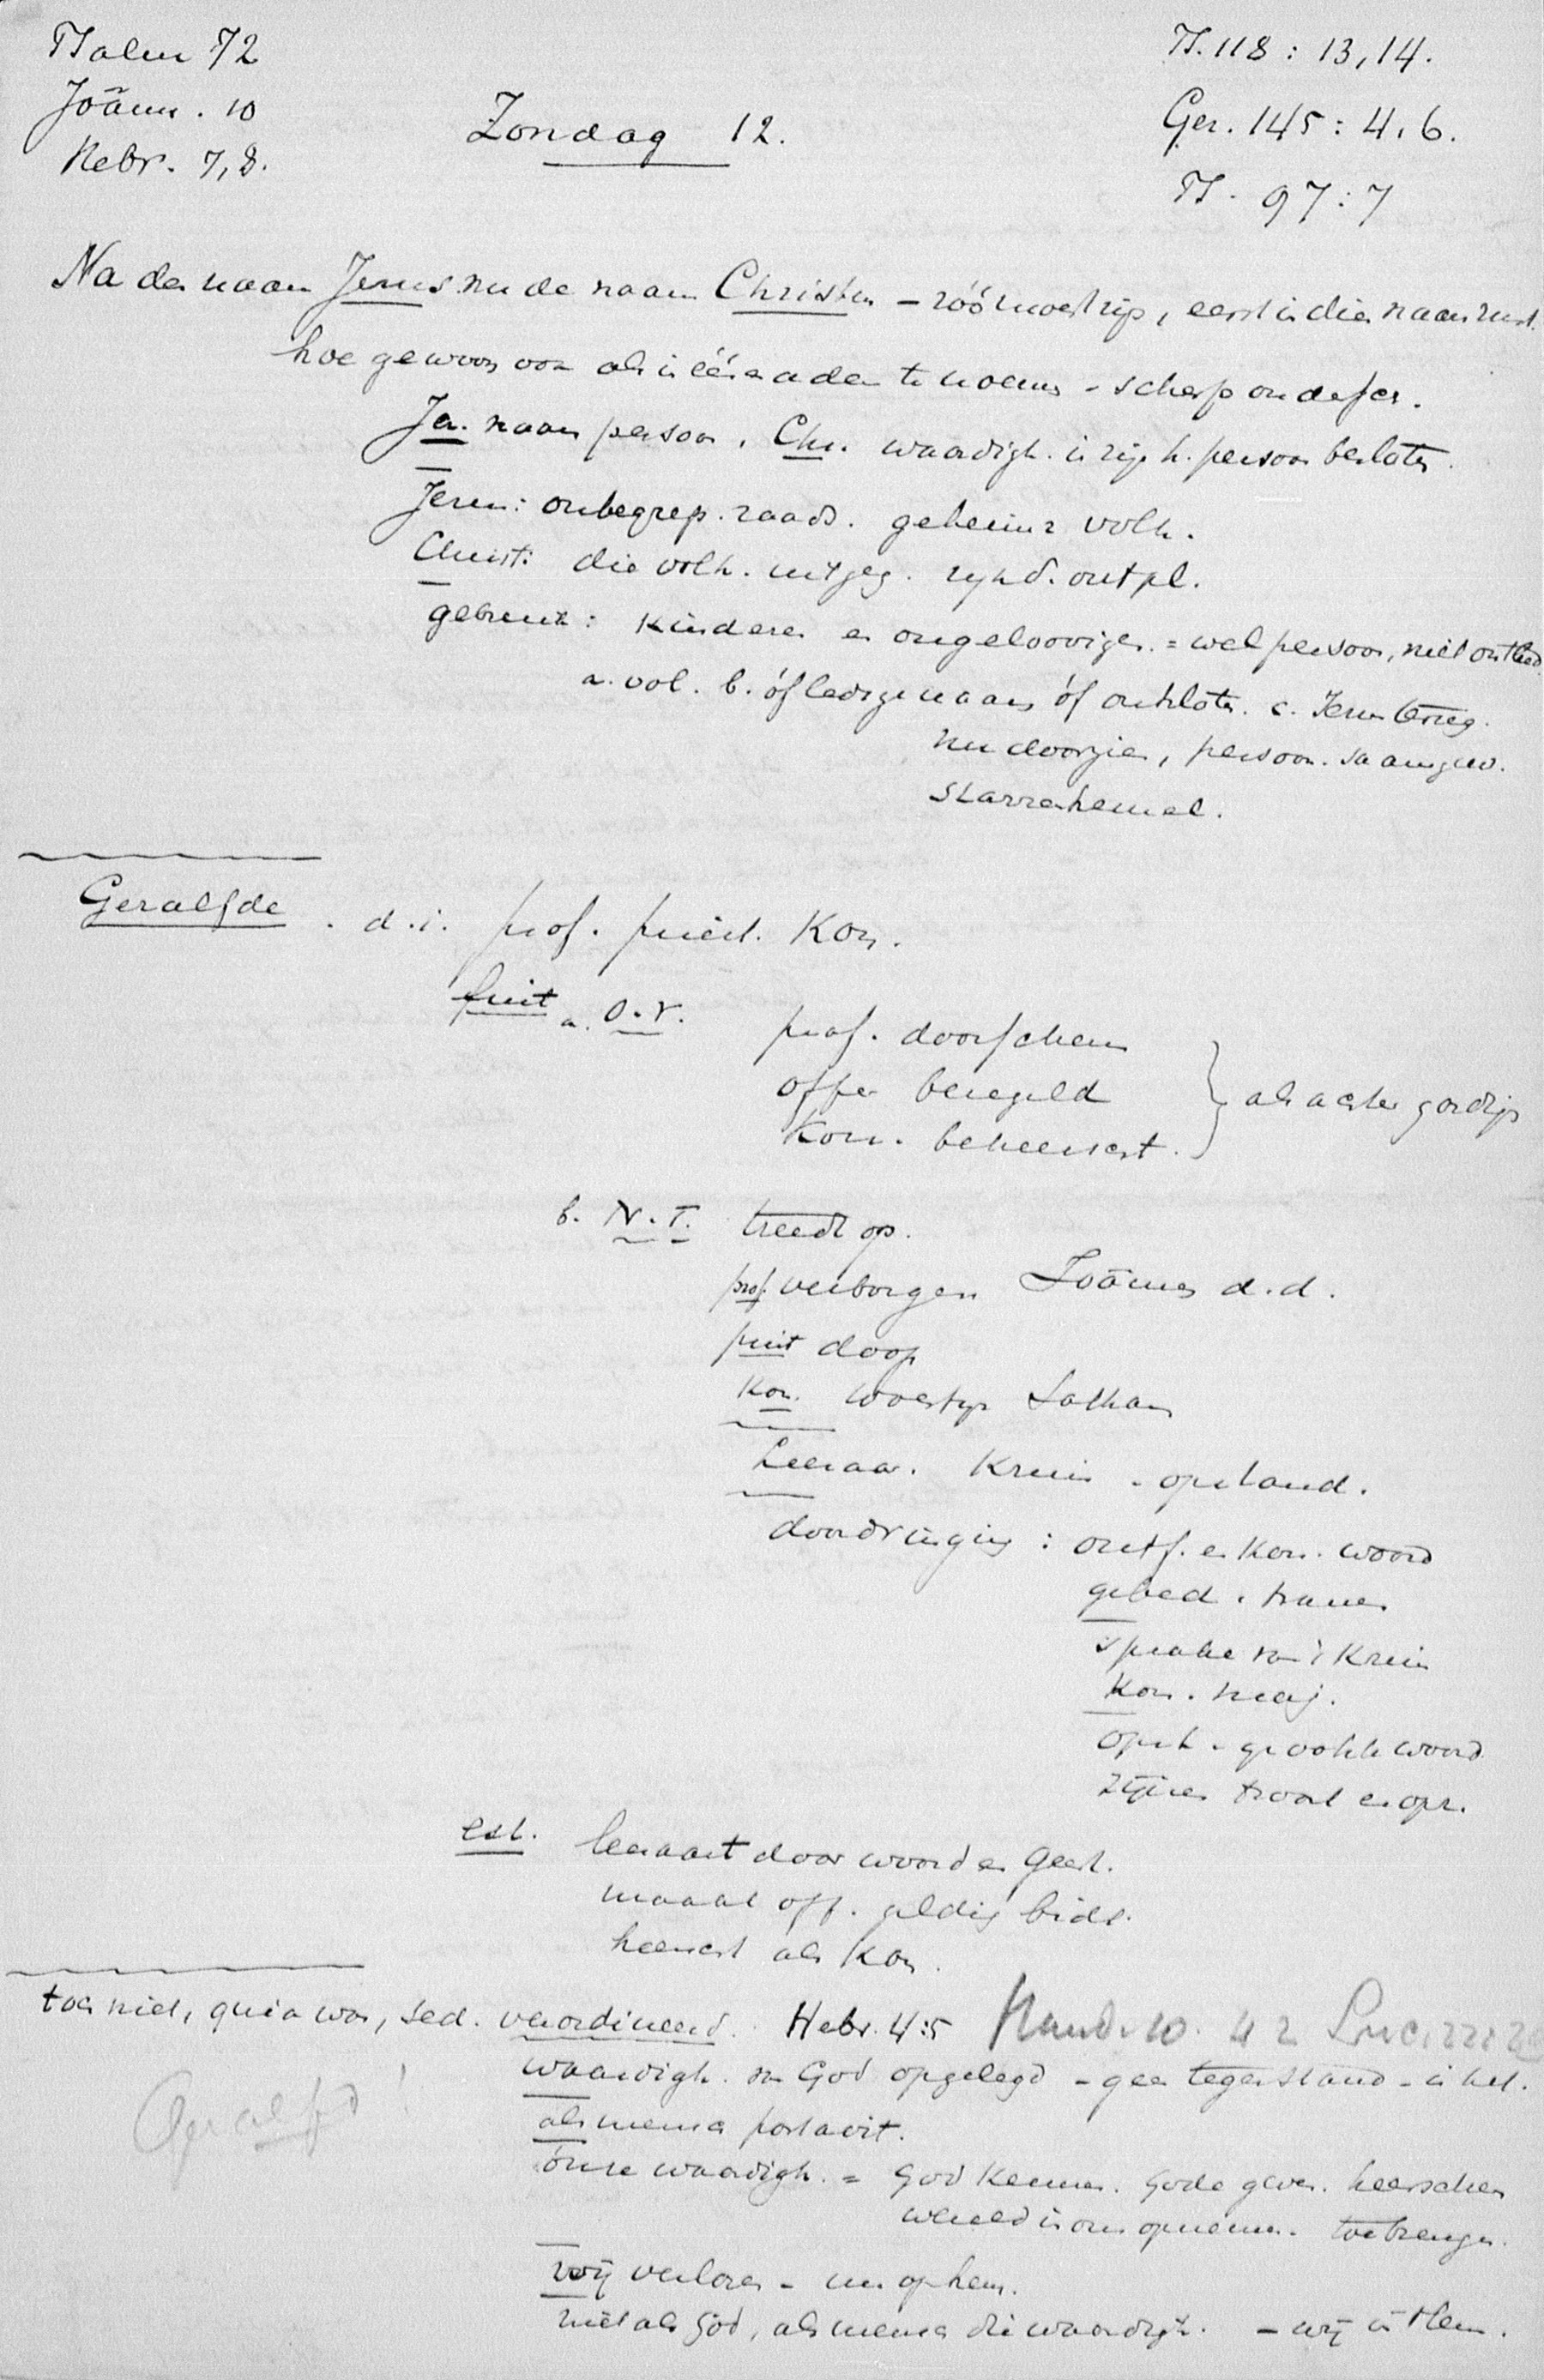 Psalm 72
Joänn. 10
Hebr. 7, 8.
Zondag 12.
Ps. 118 : 13, 14.
Ger. 145 : 4, 6.
Ps. 97 : 7
Na de naam Jezus nu de naam Christus - zóó moest zijn, eerst in dien naam rust.
hoe gewoon ook als in één adem te noemen - scherp onderscr.
Je. naam persoon, Chr. waardigh. in zijn h. persoon besloten.
Jezus: onbegrep. raads. geheimz volh.
Christ: die volh. uitgeg. zijnd. ontpl.
gebruik: Kinderen en ongeloovigen = wel persoon, niet ontleed
a. vol. b. óf ledige naam óf ontsloten. c. Jezus terug.
nu doorzien, persoon. saamgev.
starrenhemel.
Gezalfde . d.i. prof. priest. Kon.
fuit a. O.T.
prof. doorschem
offer bezegeld
Kon. beheerscht.
als achter gordijn
b. N.T. treedt op.
prof. verborgen Joännes d.d.
priest doop
Kon. woestijn Sathan
Leeraar. Kruis - opstand.
doordringing : ontf. en Kon. woord
gebed . tranen
sprake van 't Kruis
Kon. maj.
opst - woord
zijnen troost en opr.
est. leeraart door woord en Geest.
maakt off. geldig bidt.
heerscht als Kon.
toch niet, quia was, sed. verordineerd. Hebr. 4:5 Hand. 10. 42 Luc. 22:2
waardigh. van God opgelegd - geen tegenstand - in het.
Gezalfd!
als mensch portavit.
ónze waardigh. = God kennen. Gode geven. heerschen
wereld in ons opnemen. toebrengen.
wij verloren - nu op hem.
niet als God, als mensch die waardigh. - wij in Hem.